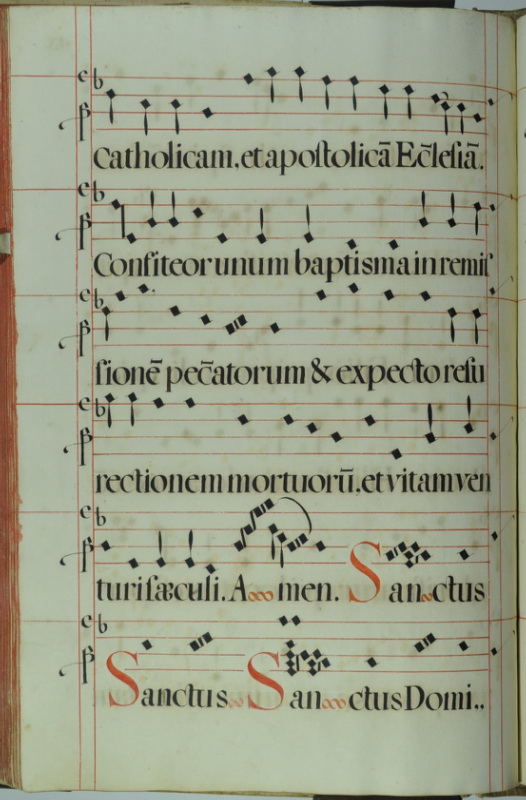 Catholicam, et apostolicā Ec̄lesiā.
Confiteor unum baptisma in remis
sionē pec̄atorum & expecto resu
rectionem mortuorū. et vitam ven
turi sæculi. A men. San ctus
Sanctus San ctus Domi..